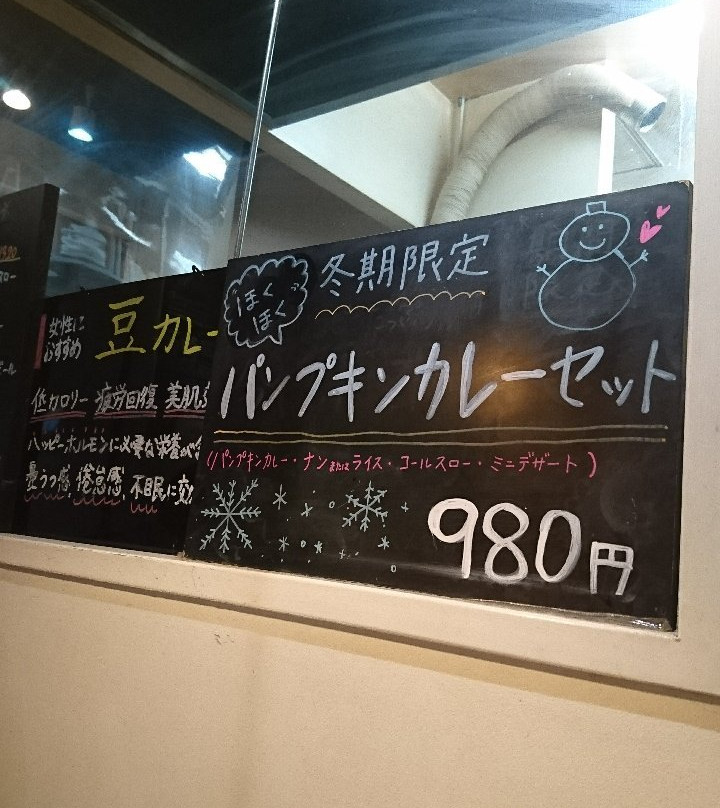 女性に
おすすめ
豆カレー
低カロリー 疲労回復 美肌
ハッピーホルモンに必要な栄養が
憂うつ感 倦怠感 不眠に
ほくほく
冬期限定
パンプキンカレーセット
(パンプキンカレー・ナンまたはライス・コールスロー・ミニデザート)
980円